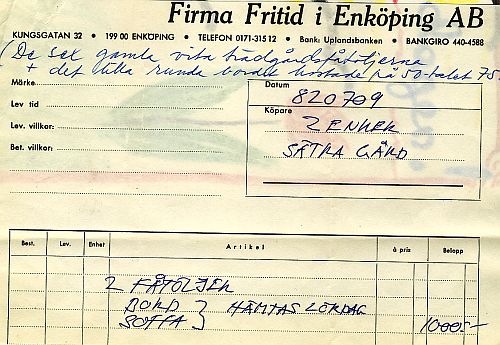 Firma Fritid i Enköping AB
KUNGSGATAN 32 • 199 00 ENKÖPING • TELEFON 0171-315 12 • Bank: Uplandsbanken • BANKGIRO 440-4588
(De sex gamla vita trädgårdsfåtöljerna
+ det lilla runda bordet kostade på 50-talet 75.
Märke
Datum
820709
Lev tid
Köpare
ZENKER
Lev. villkor:
SÄTRA GÅRD
Bet. villkor:
Best. Lev. Enhet Artikel à pris Belopp
2 FÅTÖLJER
BORD } HÄMTAS LÖRDAG
SOFFA } 1000:-